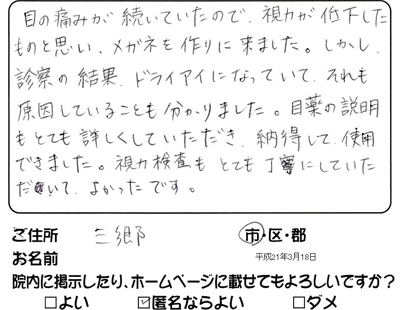 目の痛みが続いていたので、視力が低下した
ものと思い、メガネを作りに来ました。しかし、
診察の結果、ドライアイになっていて、それも
原因していることも分かりました。目薬の説明
もとても詳しくしていただき、納得して、使用
できました。視力検査も とても丁寧にしていた
だいて、よかったです。
ご住所 三郷 市・区・郡
お名前 平成21年3月18日
院内に掲示したり、ホームページに載せてもよろしいですか?
□よい ☑匿名ならよい □ダメ